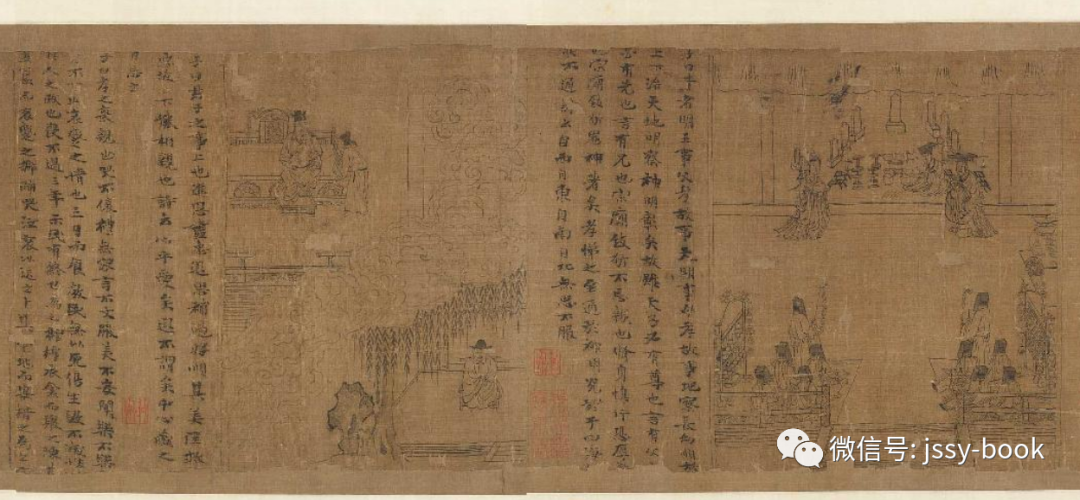 子曰昔者明王事父孝故事天明事母孝故事地察長幼順故
上下治天地明察神明彰矣故雖天子必有尊也言有父
必有先也言有兄也宗廟致敬不忘親也脩身慎行恐辱
也宗廟致敬鬼神著矣孝悌之至通於神明光於四海
不通詩云自西自東自南自北無思不服
子曰君子之事上也進思盡忠退思補過將順其美匡救
故上下能相親也詩云心乎愛矣遐不謂矣中心藏之
何日忘之
子之喪親也哭不偯禮無容言不文服美不安聞樂不樂
不甘此哀戚之情也三日而食教民無以死傷生毀不滅性
人之政也喪不過三年示民有終也為之棺椁衣衾而舉之陳其
簠簋而哀慼之擗踊哭泣哀以送之卜其宅兆而安措之為之
微信号: jssy-book